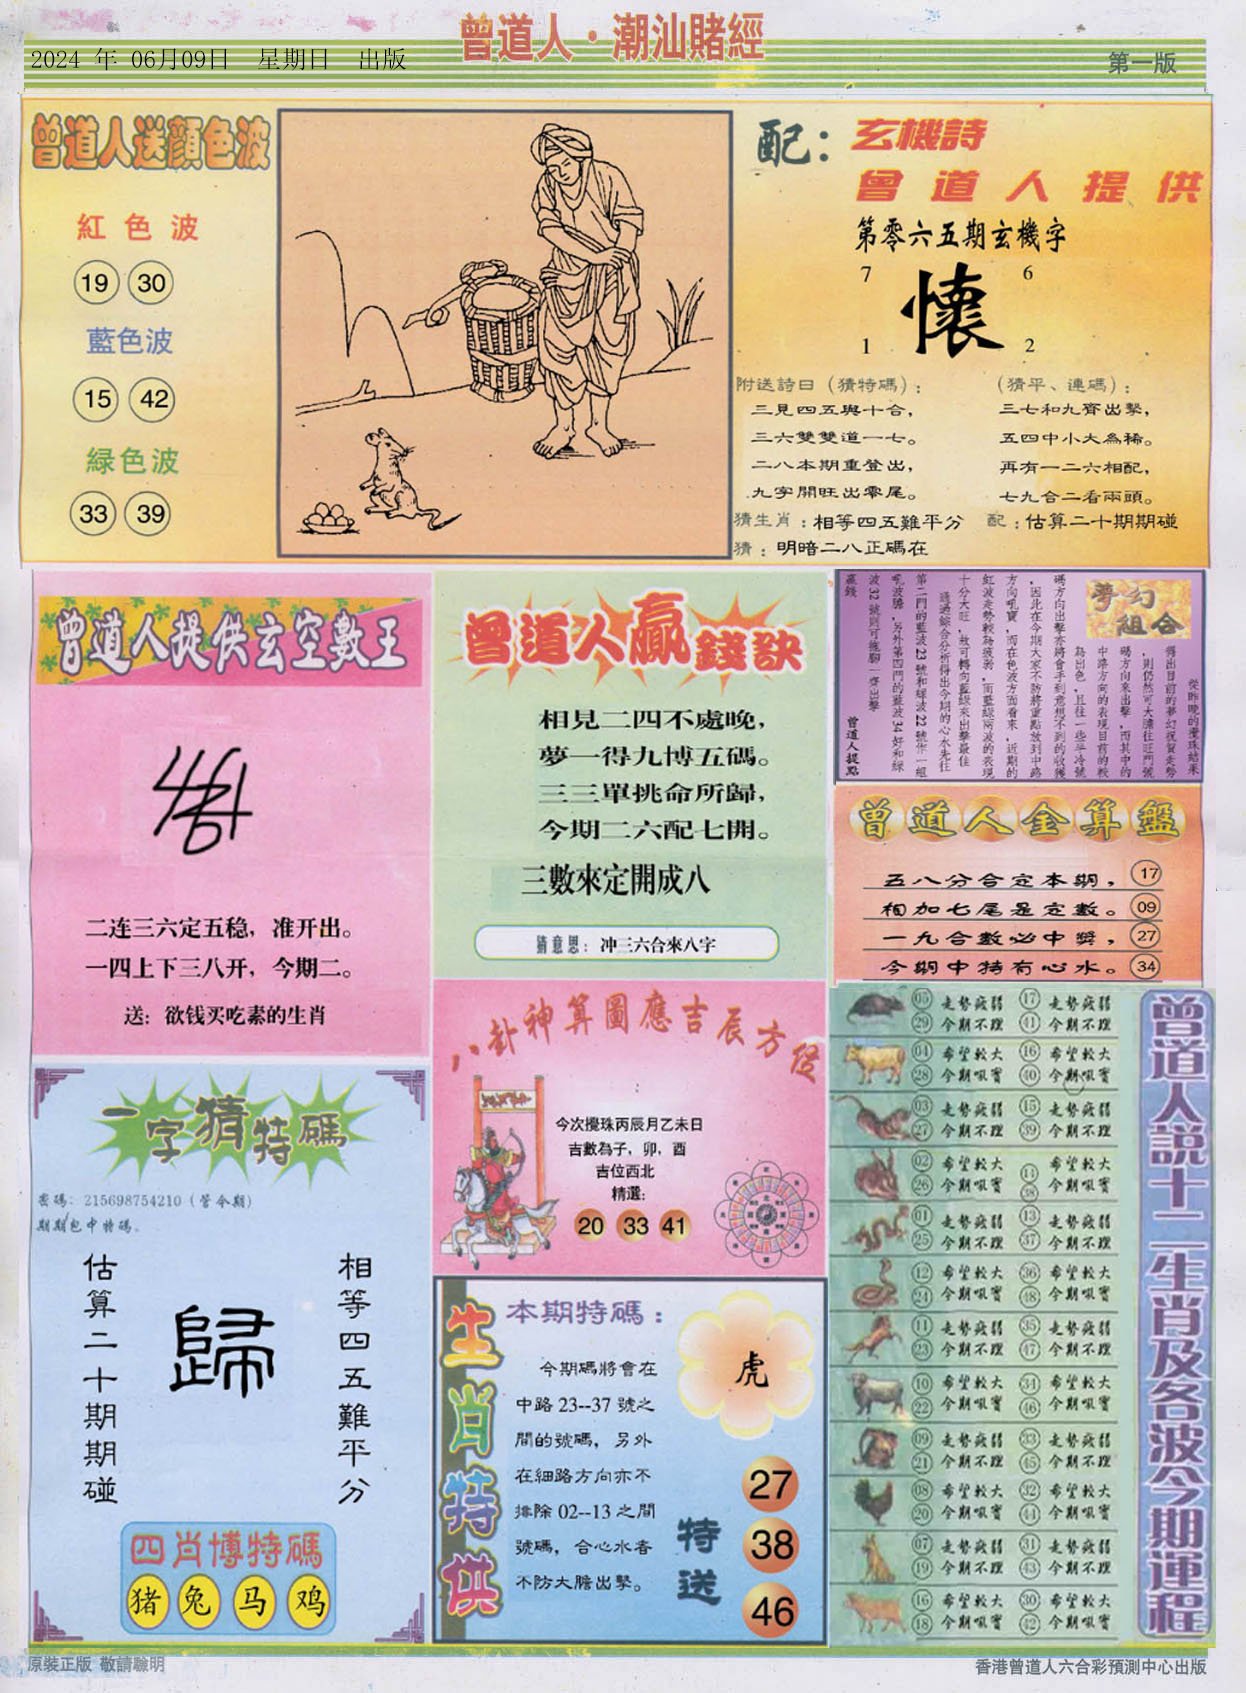 曾道人·潮汕賭經
2024 年 06月09日 星期日 出版
第一版
曾道人送顏色波
紅色波
19 30
藍色波
15 42
緑色波
33 39
配：玄機詩
曾道人提供
第零六五期玄機字
7 6
懷
1 2
附送詩曰（猜特碼）：
三見四五與十合，
三六雙雙道一七。
二八本期重登出，
九字開旺出零尾。
（猜平、連碼）：
三七和九齊出擊，
五四中小大為稀。
再有一二六相配，
七九合二看兩頭。
猜生肖：相等四五難平分
配：估算二十期期碰
猜：明暗二八正碼在
曾道人提供玄空數王
二连三六定五稳，准开出。
一四上下三八开，今期二。
送：欲钱买吃素的生肖
曾道人贏錢訣
相見二四不處晚，
夢一得九博五碼。
三三單挑命所歸，
今期二六配七開。
三數來定開成八
猜意思：冲三六合來八字
夢幻組合
從昨晚的攪珠結果
得出目前的夢幻祝賀走勢
，則仍然可大膽往旺門號
碼方向來出擊，而其中的
中路方向的表現目前的較
為出色，且往一些半冷號
碼方向出擊亦將會手到意想不到的收獲
，因此在今期大家不防將重點放到中路
方向吼寶，而在色波方面看來，近期的
紅波走勢較為疲弱，而藍綠兩波的表現
十分大旺，故可轉向藍綠來出擊最佳
通過綜合分析得出今期的心水先往
第二門的藍波23號和綠波22號作一組
吼波膽，另外第四門的藍波34好和綠
波32號則可拖腳一齊出擊
贏錢
曾道人提點
曾道人金算盤
五八分合定本期， 17
相加七尾是定數。 09
一九合數必中獎， 27
今期中特有心水。 34
八卦神算圖應吉辰方位
今次攪珠丙辰月乙未日
吉數為子，卯，酉
吉位西北
精選:
20 33 41
一字猜特碼
密碼：215698754210（管今期）
期期包中特碼。
估算二十期期碰
歸
相等四五難平分
四肖博特碼
猪 兔 马 鸡
生肖特供
本期特碼：
今期碼將會在
中路 23--37 號之
間的號碼，另外
在細路方向亦不
排除 02--13 之間
號碼，合心水者
不防大膽出擊。
虎
特送
27
38
46
曾道人説十二生肖及各波今期運程
05 走勢疲弱 17 走勢疲弱
29 今期不理 41 今期不理
04 希望較大 16 希望較大
28 今期吼寶 40 今期吼寶
03 走勢疲弱 15 走勢疲弱
27 今期不理 39 今期不理
02 希望較大 14 希望較大
26 今期吼寶 38 今期吼寶
01 走勢疲弱 13 走勢疲弱
25 今期不理 37 今期不理
12 希望較大 36 希望較大
24 今期吼寶 48 今期吼寶
11 走勢疲弱 35 走勢疲弱
23 今期不理 47 今期不理
10 希望較大 34 希望較大
22 今期吼寶 46 今期吼寶
09 走勢疲弱 33 走勢疲弱
21 今期不理 45 今期不理
08 希望較大 32 希望較大
20 今期吼寶 44 今期吼寶
07 走勢疲弱 31 走勢疲弱
19 今期不理 43 今期不理
16 希望較大 30 希望較大
18 今期吼寶 42 今期吼寶
原裝正版 敬請聯明
香港曾道人六合彩預測中心出版